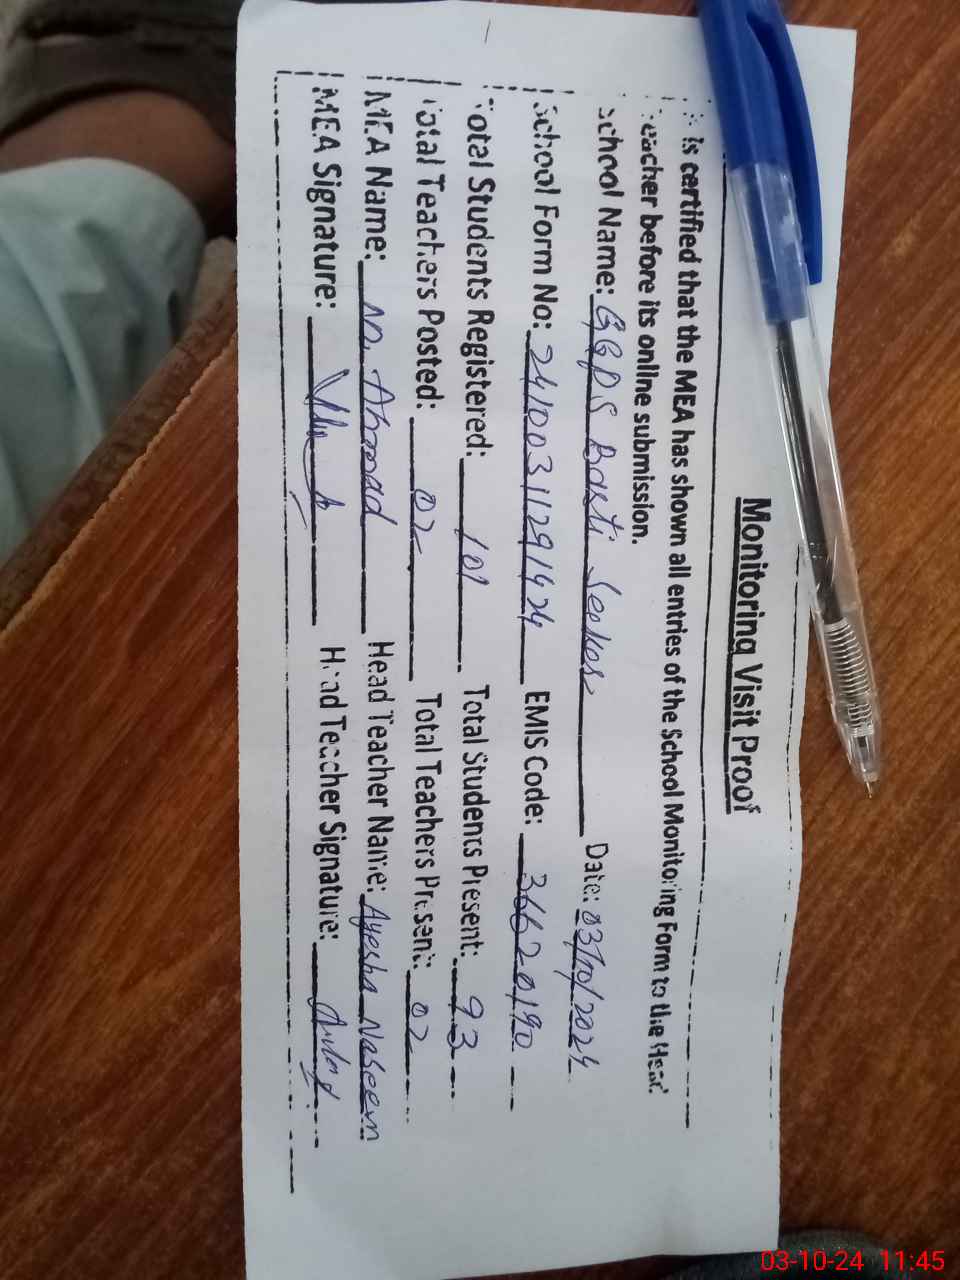 Monitoring Visit Proof
is certified that the MEA has shown all entries of the School Monitoring Form to the Head
Teacher before its online submission.
School Name: GGPS Basti Date: 03/10/2024
School Form No: 24100311291424 EMIS Code: 36620190
Total Students Registered: 101 Total Students Present: 93
Total Teachers Posted: 02 Total Teachers Present: 02
MEA Name: M. Ahmad Head Teacher Name: Ayesha Naseem
MEA Signature: Head Teacher Signature:
03-10-24 11:45